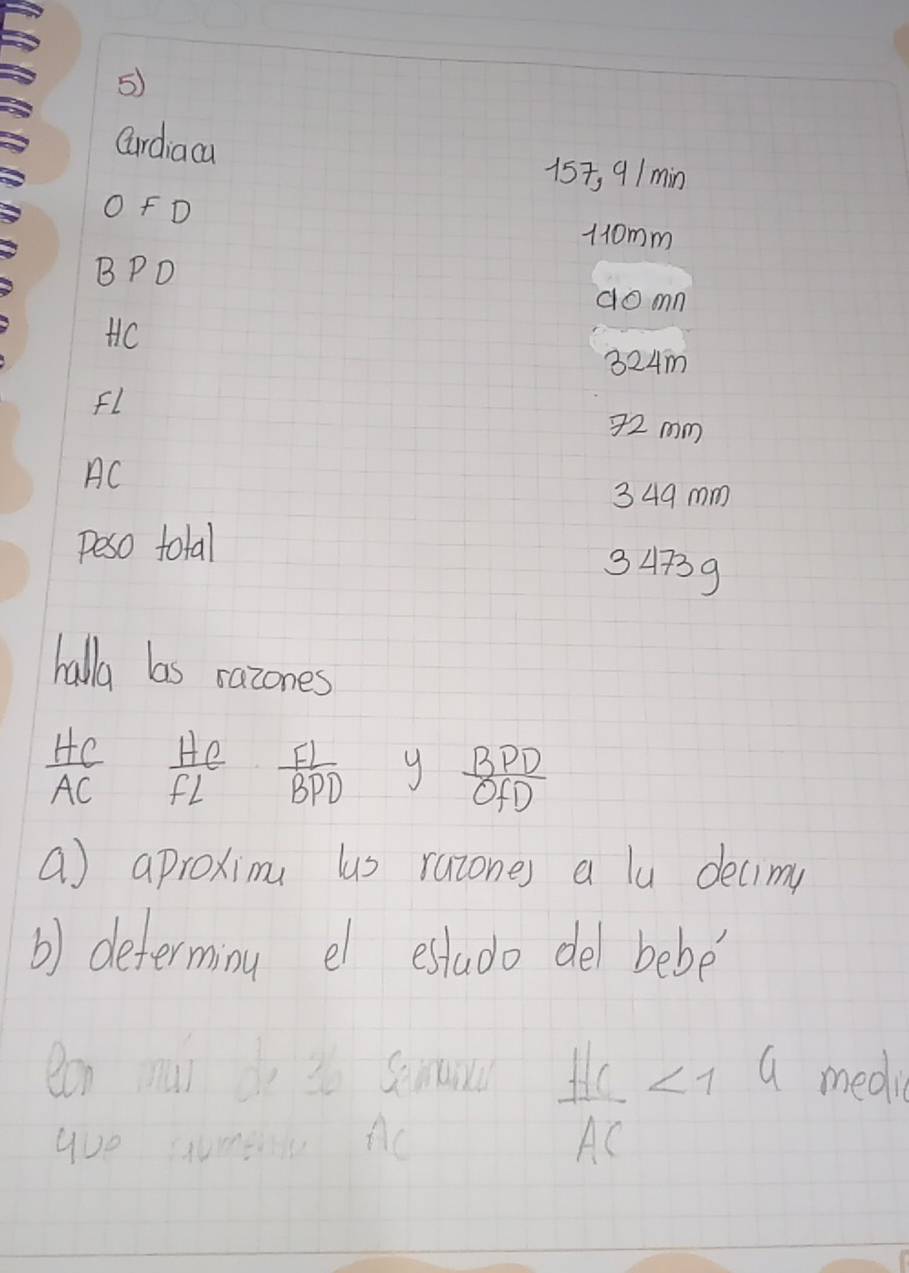 5)
Cardiaca 157,9/min
OFD 110mm
BPD 90 mn
HC 324m
FL 72 mm
AC 349 mm
Peso total 3473g
halla las razones
HC/AC HC/FL FL/BPD y BPD/OfD
a) aproxima las razones a la decima
b) determina el estado del bebé
Con mas de 36 Semanas HC/AC <1 a medid
que aumenta AC